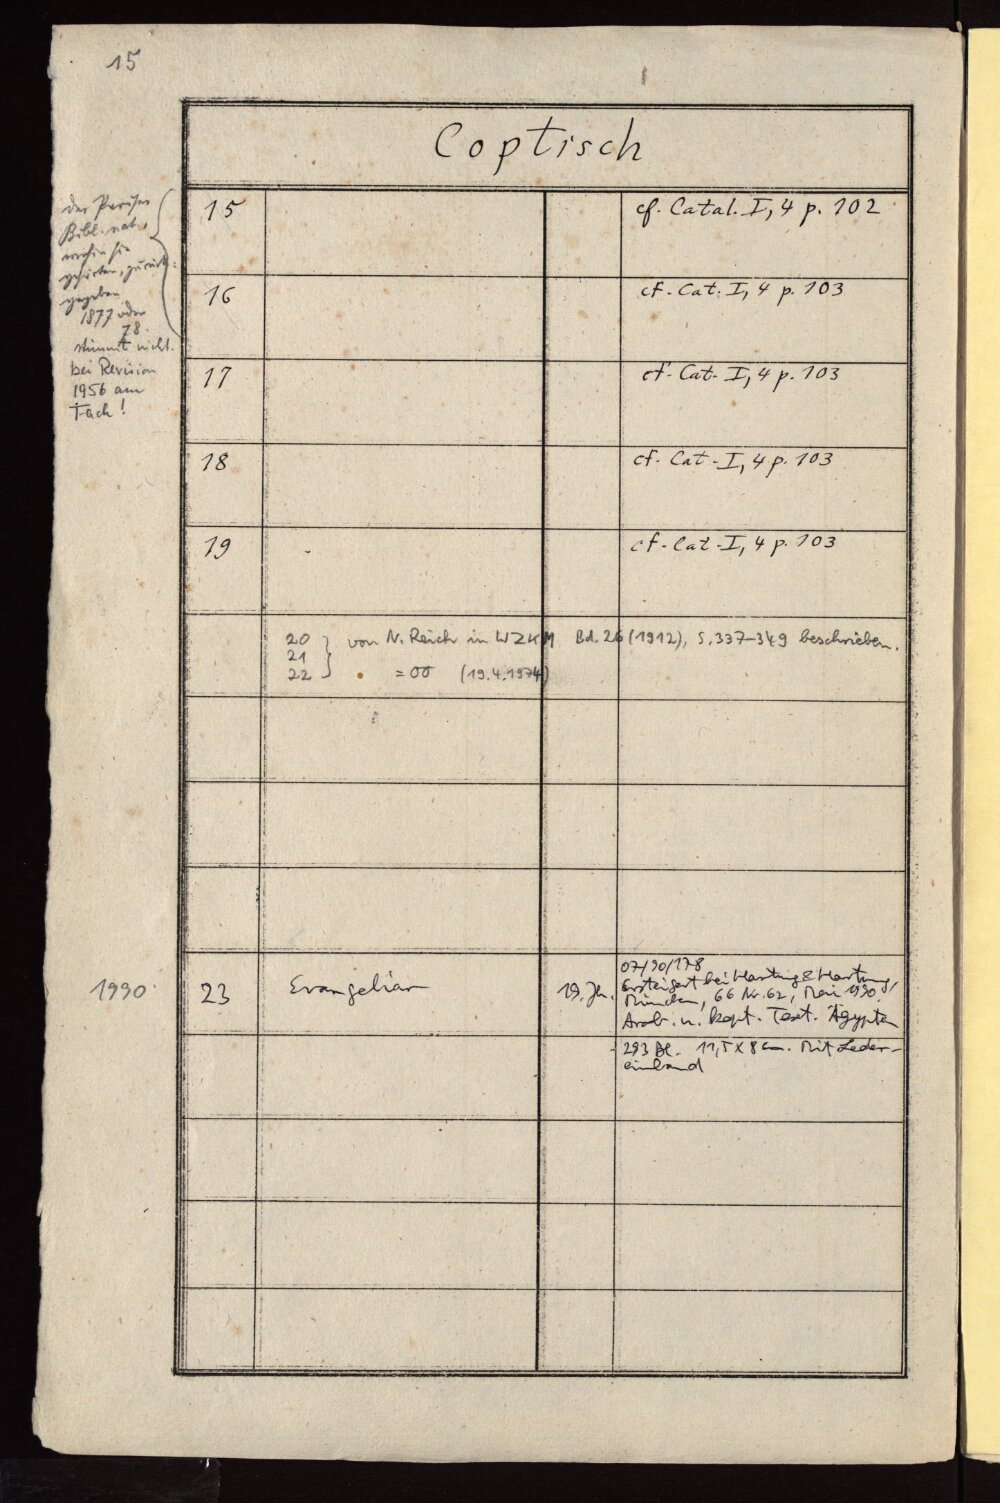 15
Coptisch
der Pariser
Bibl. nat.,
wohin sie
gehörten, zurück-
gegeben
1877 oder
78.
stimmt nicht.
bei Revision
1956 am
Fach!
15 cf. Catal. I, 4 p. 102
16 cf. Cat. I, 4 p. 103
17 cf. Cat. I, 4 p. 103
18 cf. Cat. I, 4 p. 103
19 cf. Cat. I, 4 p. 103
20 } von N. Reich in WZKM Bd. 26 (1912), S. 337-349 beschrieben.
21
22 = (19.4.1974)
1990. 23 Evangeliar 19. Jh. 07/90/178
Ersteigert bei Hartung & Hartung,
München, 66 Nr. 62, Mai 1990.
Arab. u. kopt. Text. Ägypten
293 Bl. 11,5 x 8 cm. Mit Leder-
einband